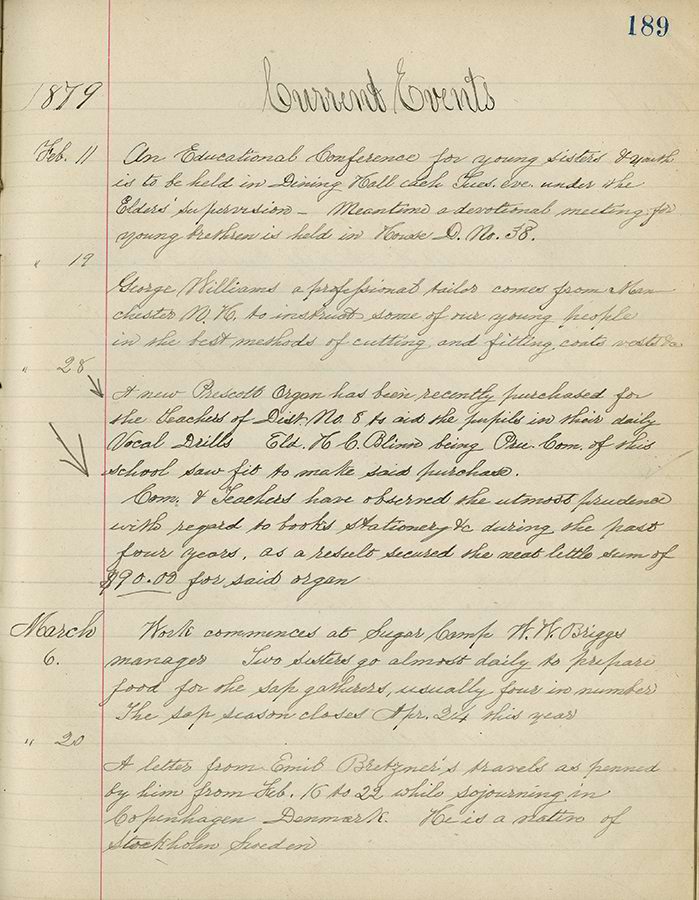 189
1879 Current Events
Feb. 11 An Educational Conference for young sisters & youth
is to be held in Dining Hall each Tues. eve. under the
Elders' supervision – Meantime a devotional meeting for
young brethren is held in House D. No. 38.
" 19
George Williams a professional tailor comes from Man-
chester N.H. to instruct some of our young people
in the best methods of cutting and fitting coats vests &c
" 28
A new Prescott Organ has been recently purchased for
the teachers of Dist. No. 8 to aid the pupils in their daily
Vocal Drills Eld. H. C. Blinn being Pru. Com. of this
school saw fit to make said purchase.
Com. & Teachers have observed the utmost prudence
with regard to books stationery &c during the past
four years, as a result secured the neat little sum of
$90.00 for said organ
March Work commences at Sugar Camp W. W. Briggs
6. manager Two sisters go almost daily to prepare
food for the sap gatherers, usually four in number
The sap season closes Apr. 24 this year
" 20
A letter from Emil Bretzner's travels as penned
by him from Feb. 16 to 22 while sojourning in
Copenhagen Denmark. He is a native of
Stockholm Sweden